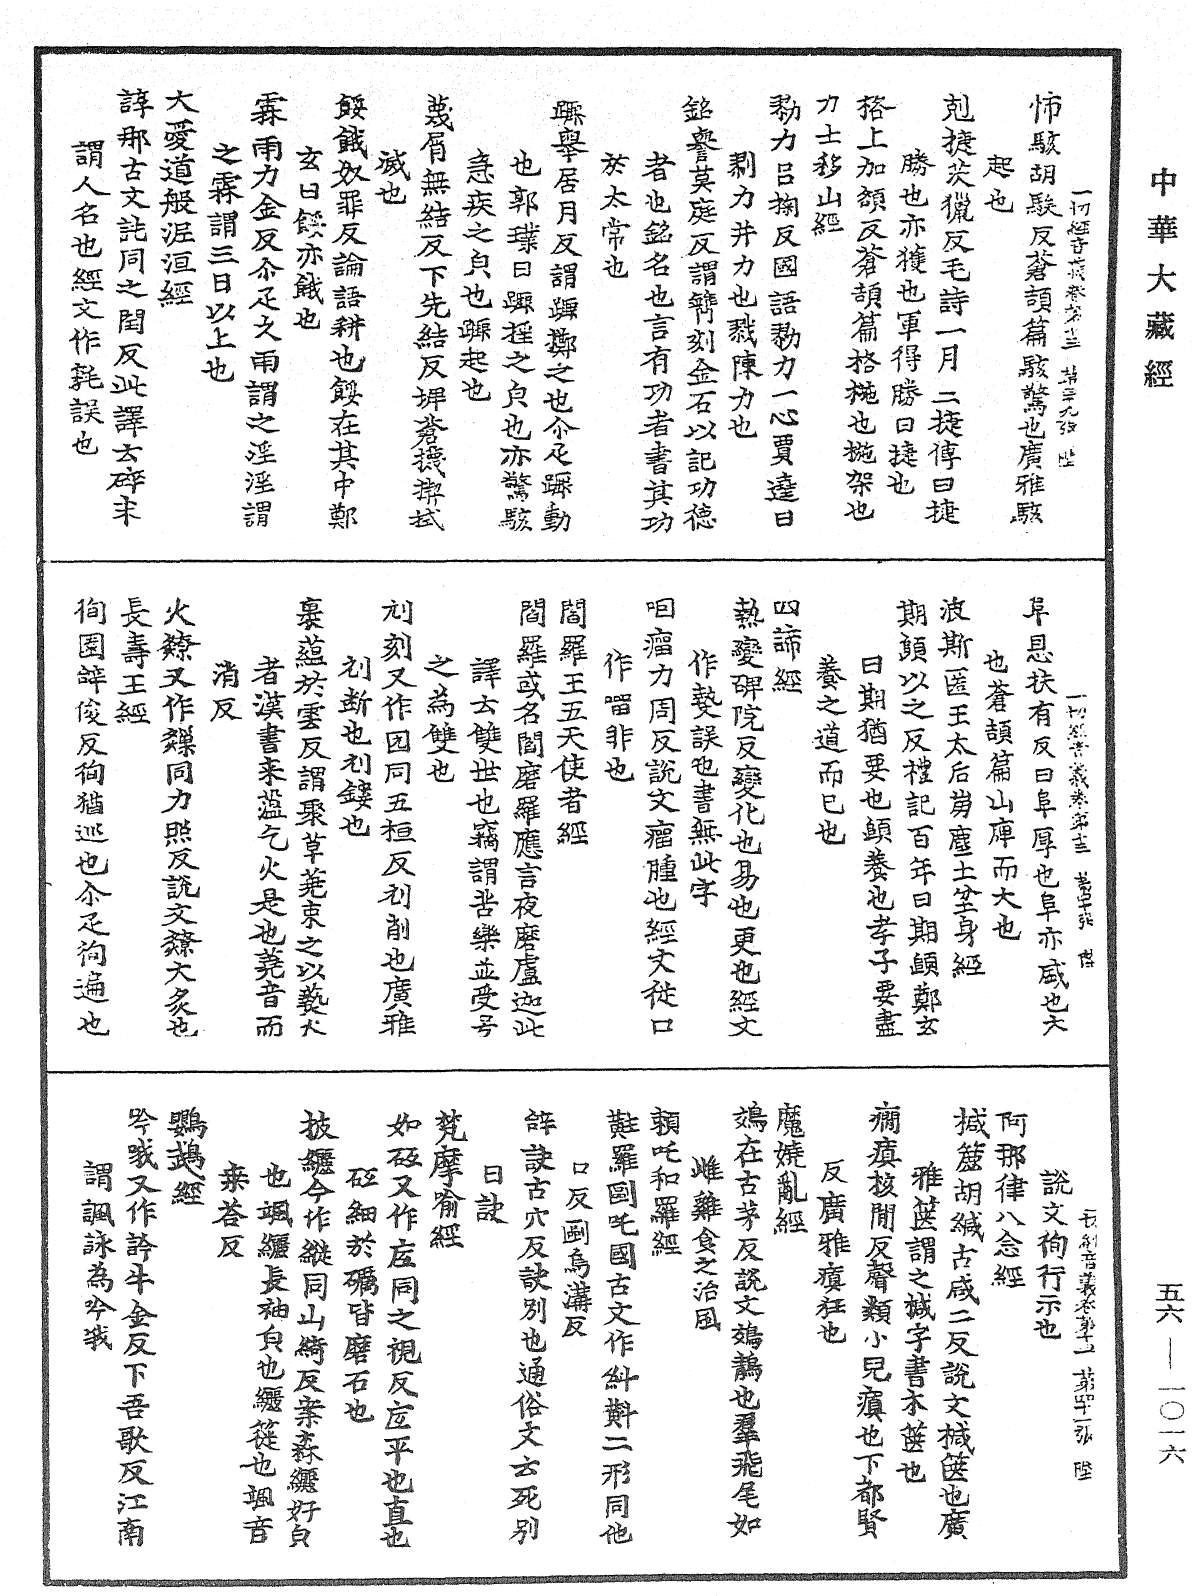 中華大藏經
一切經音義卷第十三 第三十九張 陞
怖駭胡駭反蒼頡篇駭驚也廣雅駭
起也
剋捷茨獵反毛詩一月三捷傳曰捷
勝也亦獲也軍得勝曰捷也
挌上加頟反蒼頡篇挌椸也椸架也
力士移山經
勠力呂掬反國語勠力一心賈逵曰
勠力并力也戮陳力也
銘譽莫庭反謂鐫刻金石以記功德
者也銘名也言有功者書其功
於太常也
蹶舉居月反謂蹶擲之也尒疋蹶動
也郭璞曰蹶摇之皃也亦驚駭
急疾之皃也蹶起也
蔑屑無結反下先結反埤蒼攕揳拭
滅也
餧餓奴罪反論語耕也餧在其中鄭
玄曰餧亦餓也
霖雨力金反尒疋久雨謂之淫淫謂
之霖謂三日以上也
大愛道般泥洹經
諄那古文訰同之閏反此譯云碎末
謂人名也經文作㲄誤也
一切經音義卷第十三 第四十張 陞
阜恩扶有反曰阜厚也阜亦盛也大
也蒼頡篇山庳而大也
波斯匿王太后崩塵土坌身經
期頤以之反禮記百年曰期頤鄭玄
曰期猶要也頤養也孝子要盡
養之道而已也
四諦經
熱變碑院反變化也易也更也經文
作㜑誤也書無此字
咽瘤力周反說文瘤腫也經文從口
作㗬非也
閻羅王五天使者經
閻羅或名閻磨羅應言夜磨盧迦此
譯云雙世也竊謂苦樂並受号
之為雙也
刓刻又作园同五桓反刓削也廣雅
刓断也刓鏤也
裹蕴於雲反謂聚草蕘束之以爇火
者漢書束蕴乞火是也蕘音而
消反
火燎又作𤐫同力照反說文燎大炙也
長壽王經
徇圂辝俊反徇猶巡也尒疋徇遍也
說文徇行示也
一切經音義卷第十三 第四十一張 陞
阿那律八念經
椷簏胡緘古咸二反說文椷篋也廣
雅篋謂之椷字書木篋也
癎瘨核閒反聲類小兒瘨也下都賢
反廣雅瘨狂也
魔嬈亂經
鴳在古茅反說文鴳鶄也羣飛尾如
雌雞食之治風
頼吒和羅經
黈羅國吒國古文作䊵㪷二形同他
口反剾烏溝反
辝訣古穴反訣別也通俗文云死別
曰訣
梵摩喻經
如砥又作厎同之視反厎平也直也
砥細於礪皆磨石也
披纚今作縰同山綺反案森纚好皃
也颯纚長袖皃也纚簁也颯音
桒荅反
鸚鵡經
吟哦又作訡牛金反下吾歌反江南
謂諷詠為吟哦
五六—一〇一六